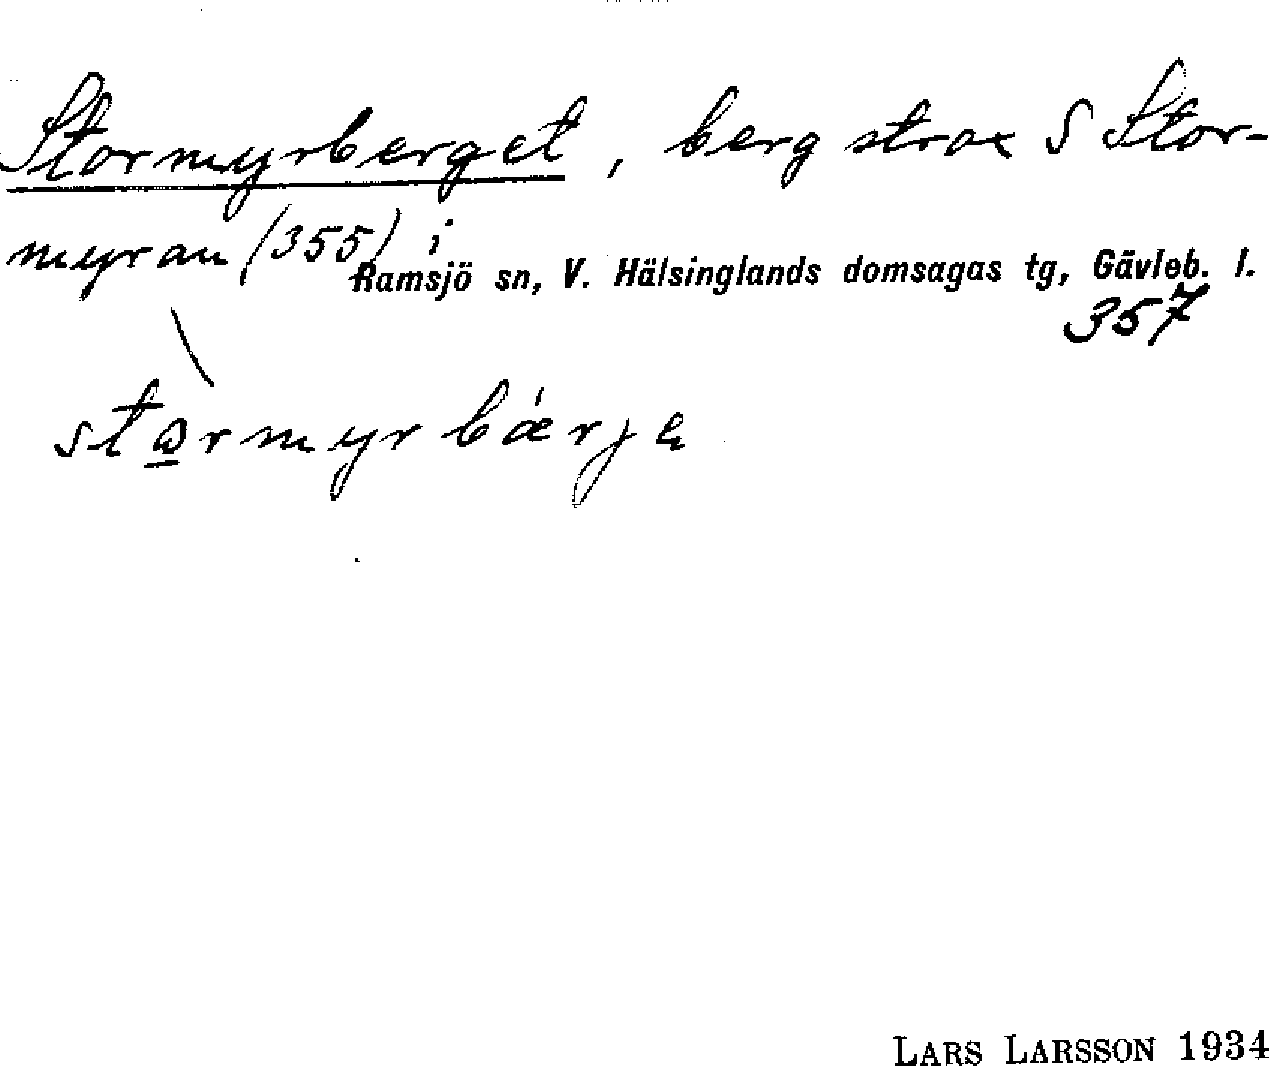 Stormyrberget, berg strax S Stor-
myran (355) i
Ramsjö sn, V. Hälsinglands domsagas tg, Gävleb. l.
357
LARS LARSSON 1934